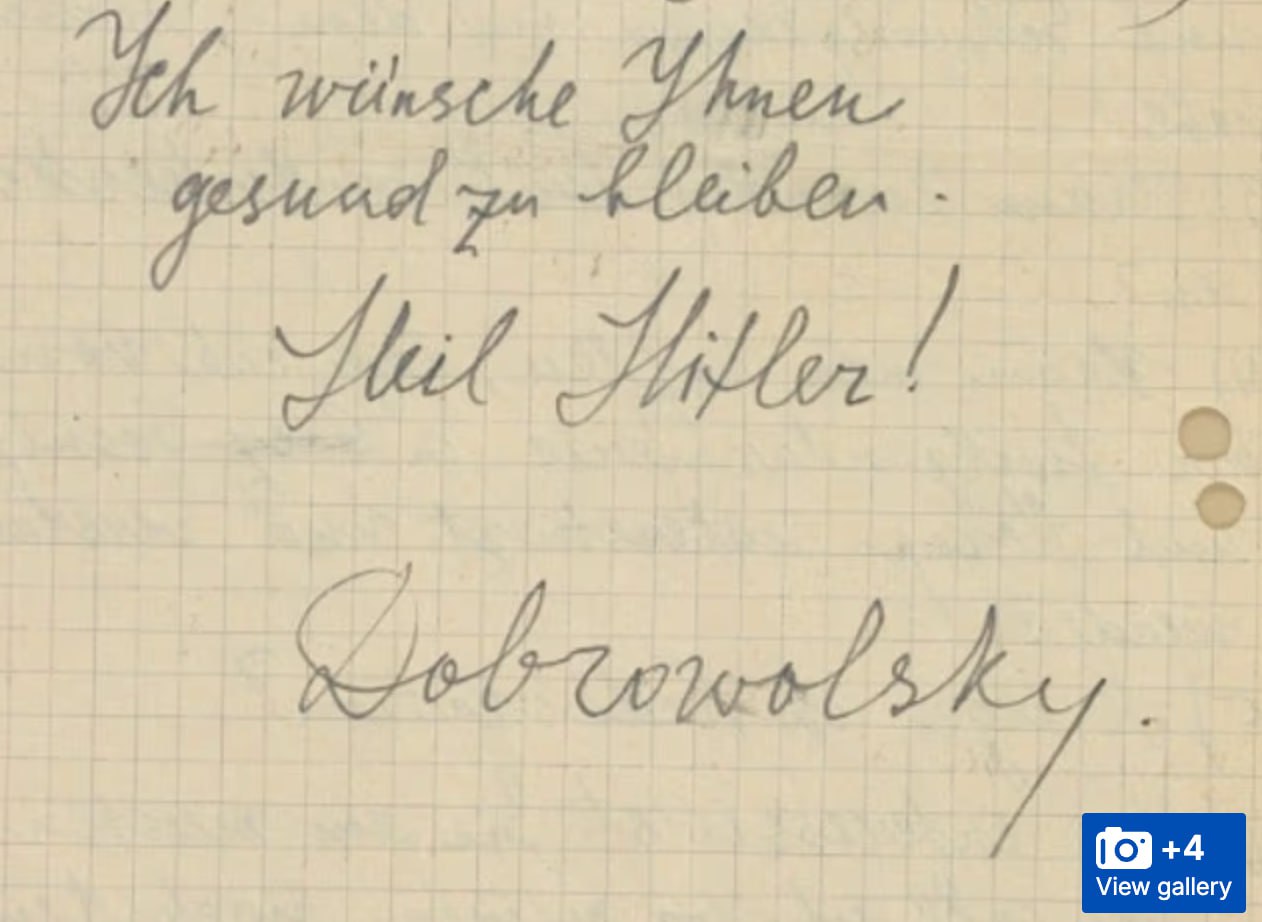 Ich wünsche Ihnen
gesund zu bleiben.
Heil Hitler!
Dobrowolsky.
+4
View gallery